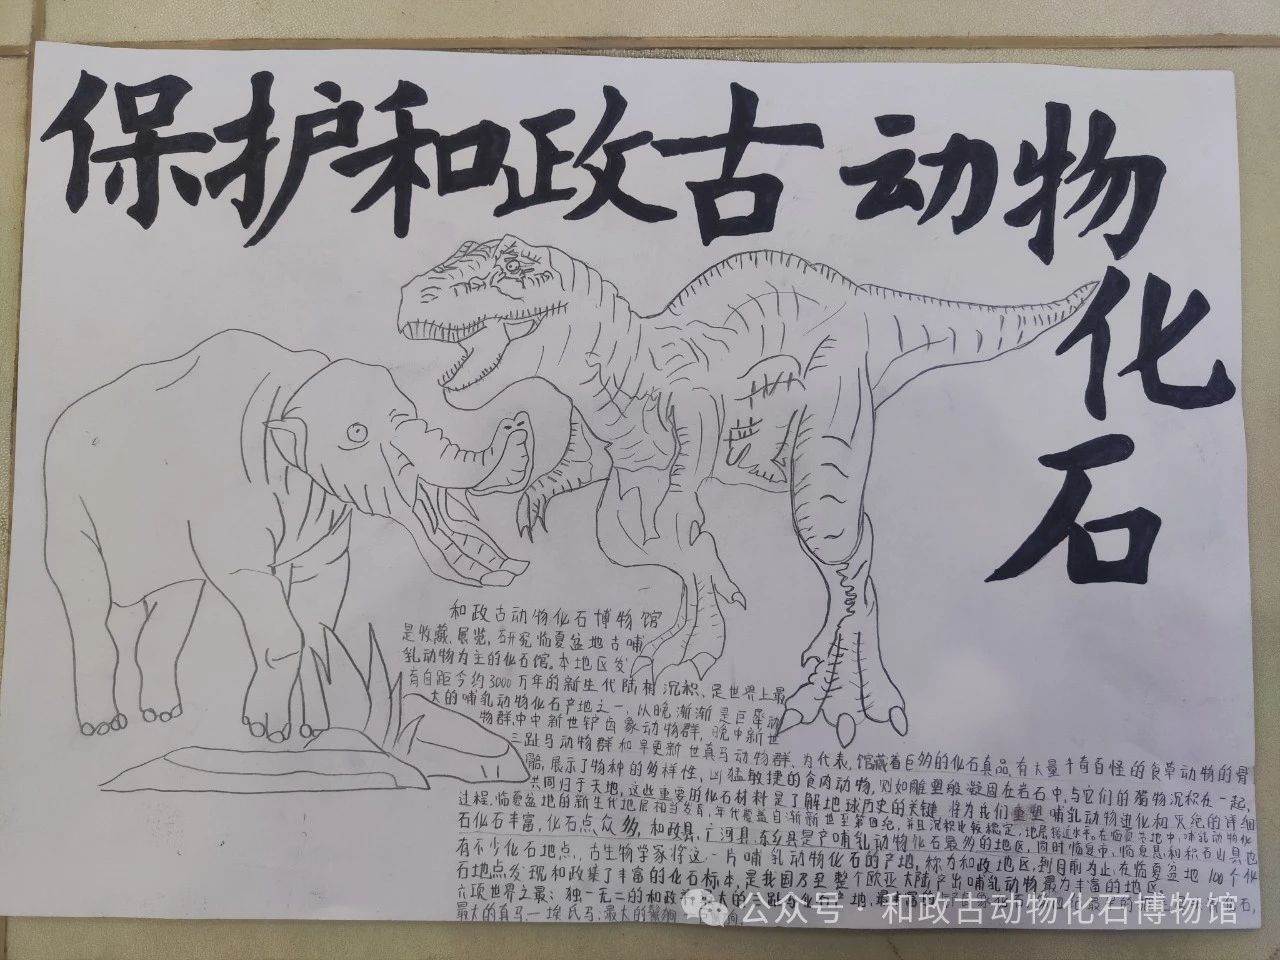 保护和政古动物
化
石
和政古动物化石博物馆
是收藏、展览、研究临夏盆地古哺
乳动物为主的化石馆。本地区发
育自距今约3000万年的新生代陆相沉积、是世界上最
大的哺乳动物化石产地之一，以晚渐渐是巨犀动
物群、中中新世铲齿象动物群，晚中新世
三趾马动物群和早更新世真马动物群、为代表，馆藏着巨多的化石真品，有大量千奇百怪的食草动物的骨
骼，展示了物种的多样性，凶猛敏捷的食肉动物，则如雕塑般凝固在岩石中，与它们的猎物沉积在一起，
共同归于天地，这些重要的化石材料是了解地球历史的关键，将为我们重塑哺乳动物进化和灭绝的详细
过程，临夏盆地的新生代地层相当发育，年代覆盖自渐新世至第四纪，并且沉积比较稳定，地层接近水平。在临夏盆地中，哺乳动物化
石化石丰富，化石点众多，和政县、广河县、东乡县是产哺乳动物化石最多的地区，同时临夏市、临夏县和积石山县也
有不少化石地点，古生物学家将这一片哺乳动物化石的产地，称为和政地区，到目前为止，在临夏盆地100个化
石地点发现和政集了丰富的化石标本，是我国乃至整个欧亚大陆产出哺乳动物最为丰富的地区。
六项世界之最：独一无二的和政羊，最大的三趾马化石产地，最
最大的真马—埃氏马、最大的鬣狗
公众号 · 和政古动物化石博物馆